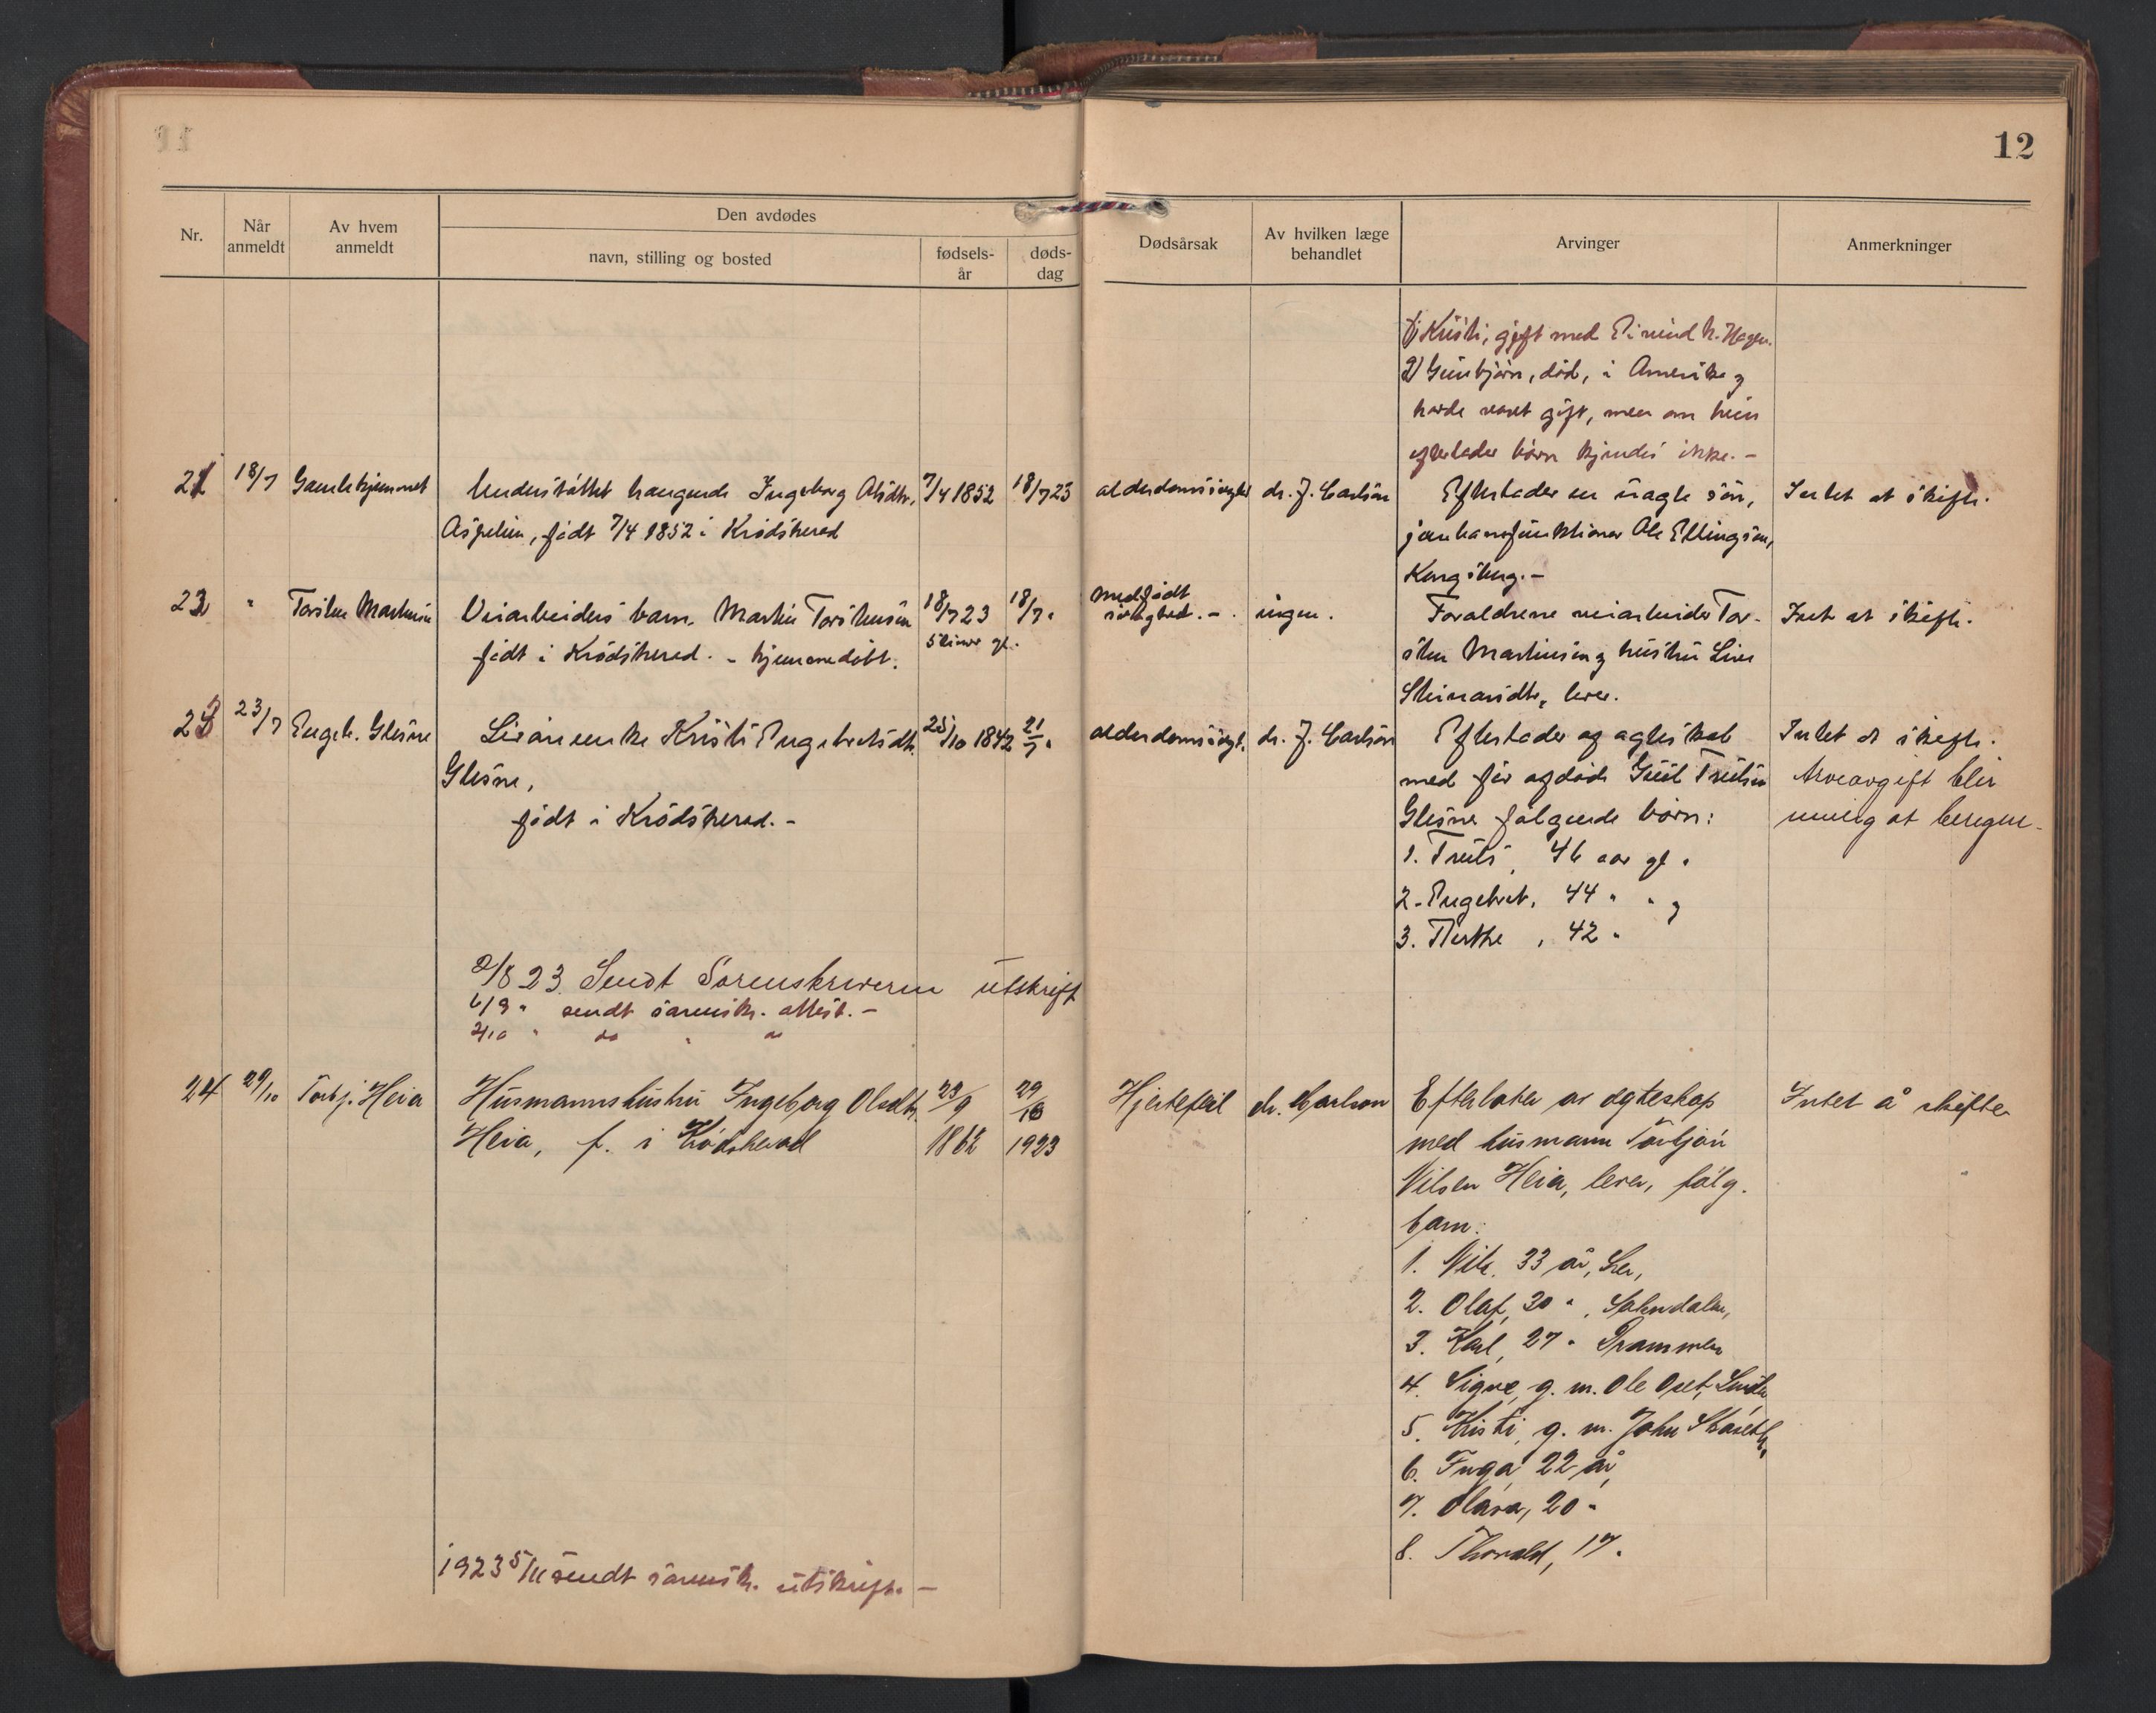 12
Nr.
Når anmeldt
Av hvem anmeldt
Den avdødes
navn, stilling og bosted
fødsels-år
døds-dag
Dødsårsak
Av hvilken læge behandlet
Arvinger
Anmerkninger
1) Kristi, gift med Eivind N. Hagen.
2) Gunbjørn, død, i Amerika og
havde været gift, men om hun
efterlader børn kjendes ikke. -
21 18/7 Gamlehjemmet Understøttet Ingeborg Olsdtr. 7/4 1852 18/7 23 alderdomssvaghet dr. J. Carlson Efterlader en uægte søn, Intet at skifte.
Aspelien, født 7/4 1852 i Krødsherad
jernbanefunktionær Ole Ellingsen,
Kongsberg. -
22 " Torsten Martinsen Veiarbeiders barn, Martin Torstensen 18/7 23 18/7 " medfødt
svaghed. - ingen. Forældrene veiarbeider Tor- Intet at skifte.
født i Krødsherad. - hjemmedøbt. 5 timer gl.
sten Martinsen og hustru Live
Steinarsdtr, lever.
23 23/7 Engebr. Glesne Livørenke Kristi Engebretsdtr. 25/10 1842 21/7 " alderdomssvagh. dr. J. Carlson Efterlader af ægteskab Intet at skifte.
Glesne,
med før afdøde Truls Trulsen Arveavgift blir
født i Krødsherad. -
Glesne følgende børn: umulig at beregne.
1. Truls, 46 aar gl.
2. Engebret, 44 " " og
3. Berthe, 42 "
2/8 23. Sendt Sorenskriveren utskrift
6/9 " sendt sorenskr. attest. -
2/10 " do " do
24 29/10 Torbj. Heia Husmannshustru Ingeborg Olsdtr. 23/9 29/10 Hjertefeil dr. Carlson Efterlater av egteskap Intet å skifte
Heia, f. i Krødsherad 1862 1923
med husmann Torbjørn
Nilsen Heia, lever, følg.
barn:
1. Nils, 33 år, Lier,
2. Olaf, 30 " ,
3. Karl, 27 " Drammen
4. Signe, g. m. Ole Oset,
5. Kristi, g. m. John
6. Inga 22 år,
7. Olava, 20 "
8. Thorvald, 17 "
1923 5/11 sendt sorenskr. utskrift. -